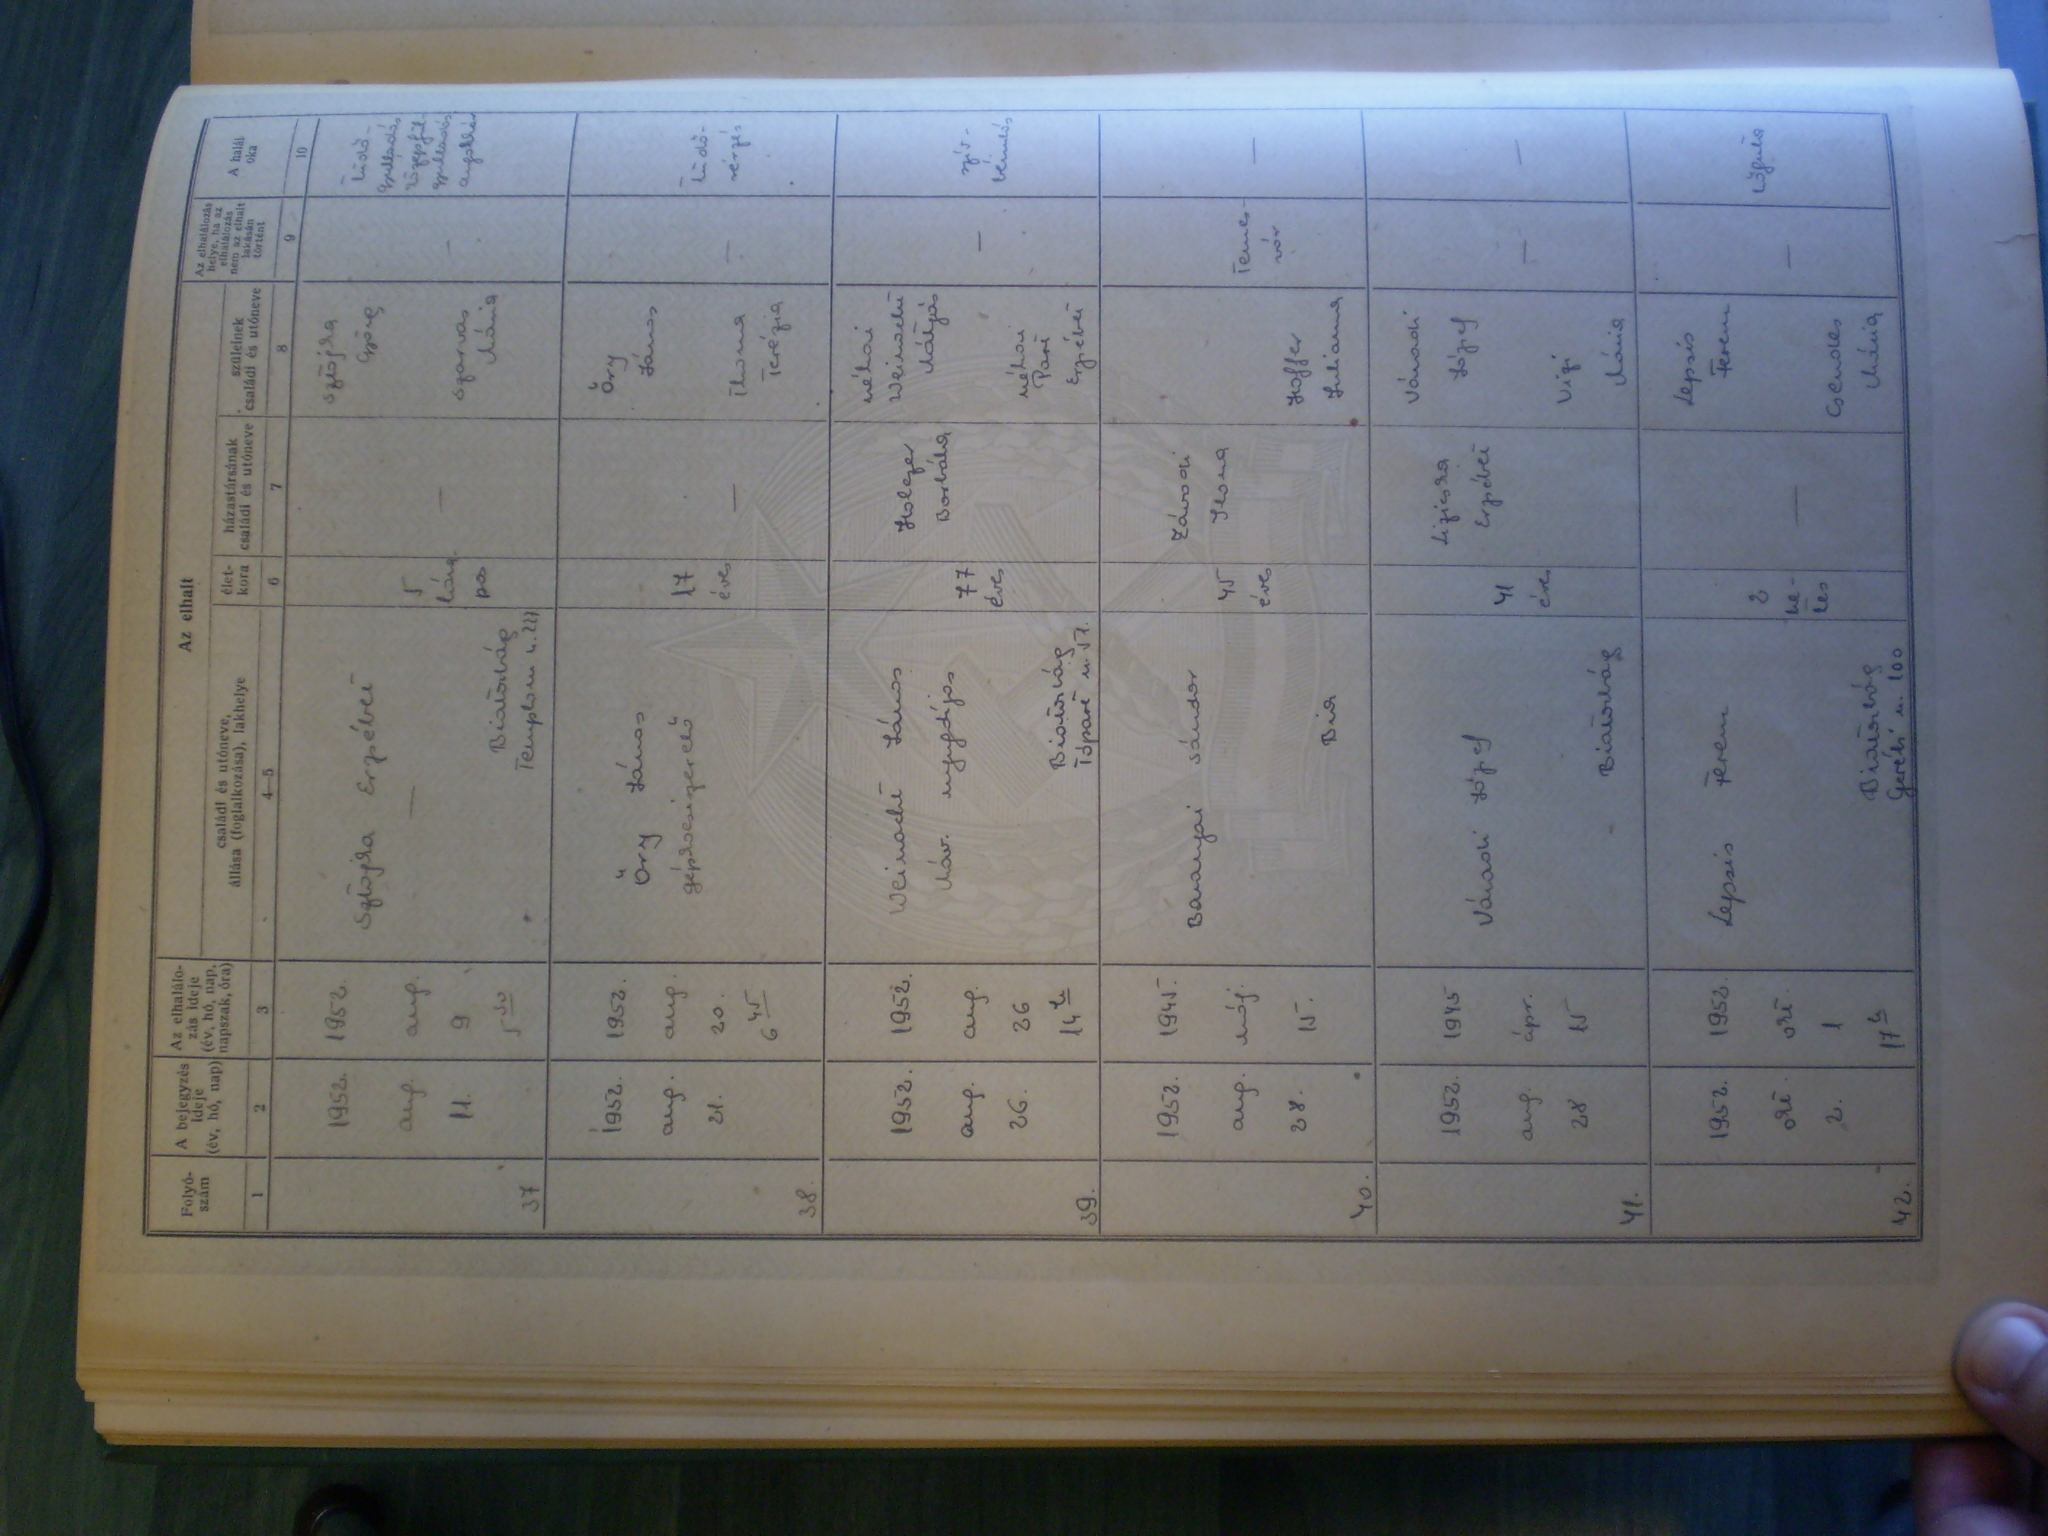 Folyó-
szám
A bejegyzés
ideje
(év, hó, nap)
Az elhaláló-
zás ideje
(év, hó, nap,
napszak, óra)
Az elhalt
családi és utóneve,
állása (foglalkozása), lakhelye
élet-
kora
házastársának
családi és utóneve
szüleinek
családi és utóneve
Az elhalálozás
helye, ha az
elhalálozás
nem az elhalt
lakásán
történt
A halál
oka
1
2
3
4—5
6
7
8
9
10
37
1952.
aug.
11.
1952.
aug.
9
5 30
Sztojka Erzsébet
—
Biatorbágy
Templom u.
5
hóna-
pos
—
Sztojka
György
Szarvas
Mária
—
tüdő-
gyulladás
középfül-
gyulladás
angolkór
38.
1952.
aug.
21.
1952.
aug.
20.
6 45
Őry János
géplocsizerelő
17
éves
—
Őry
János
Thoma
Terézia
—
tüdő-
vérzés
39.
1952.
aug.
26.
1952.
aug.
26
14 h
Weinacht János
Máv. nyugdíjas
Biatorbágy
Tópart u. 57.
77
éves
Holczer
Borbála
néhai
Weinacht
Mátyás
néhai
Part
Erzsébet
—
szív-
bénulás
40.
1952.
aug.
28.
1945.
máj.
15.
Baranyai Sándor
Bia
45
éves
Závodi
Ilona
Hoffer
Julianna
Temes-
vár
—
41.
1952.
aug.
28
1945
ápr.
15
Váradi József
Biatorbágy
41
éves
Lizicska
Erzsébet
Váradi
József
Vizi
Mária
—
—
42.
1952.
okt.
2.
1952.
okt.
1
17 h
Lepsis Ferenc
Biatorbágy
Gerébi u. 100
2
he-
tes
—
Lepsis
Ferenc
Csendes
Mária
—